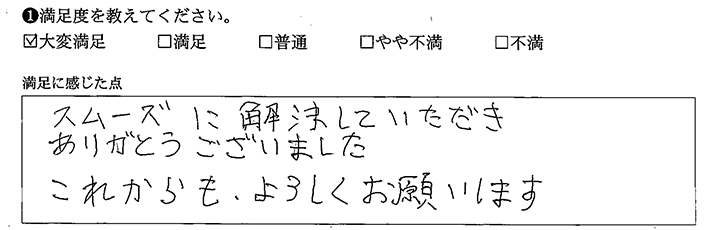 ❶満足度を教えてください。
☑大変満足 □満足 □普通 □やや不満 □不満
満足に感じた点
スムーズに解決していただき
ありがとうございました
これからも、よろしくお願いします